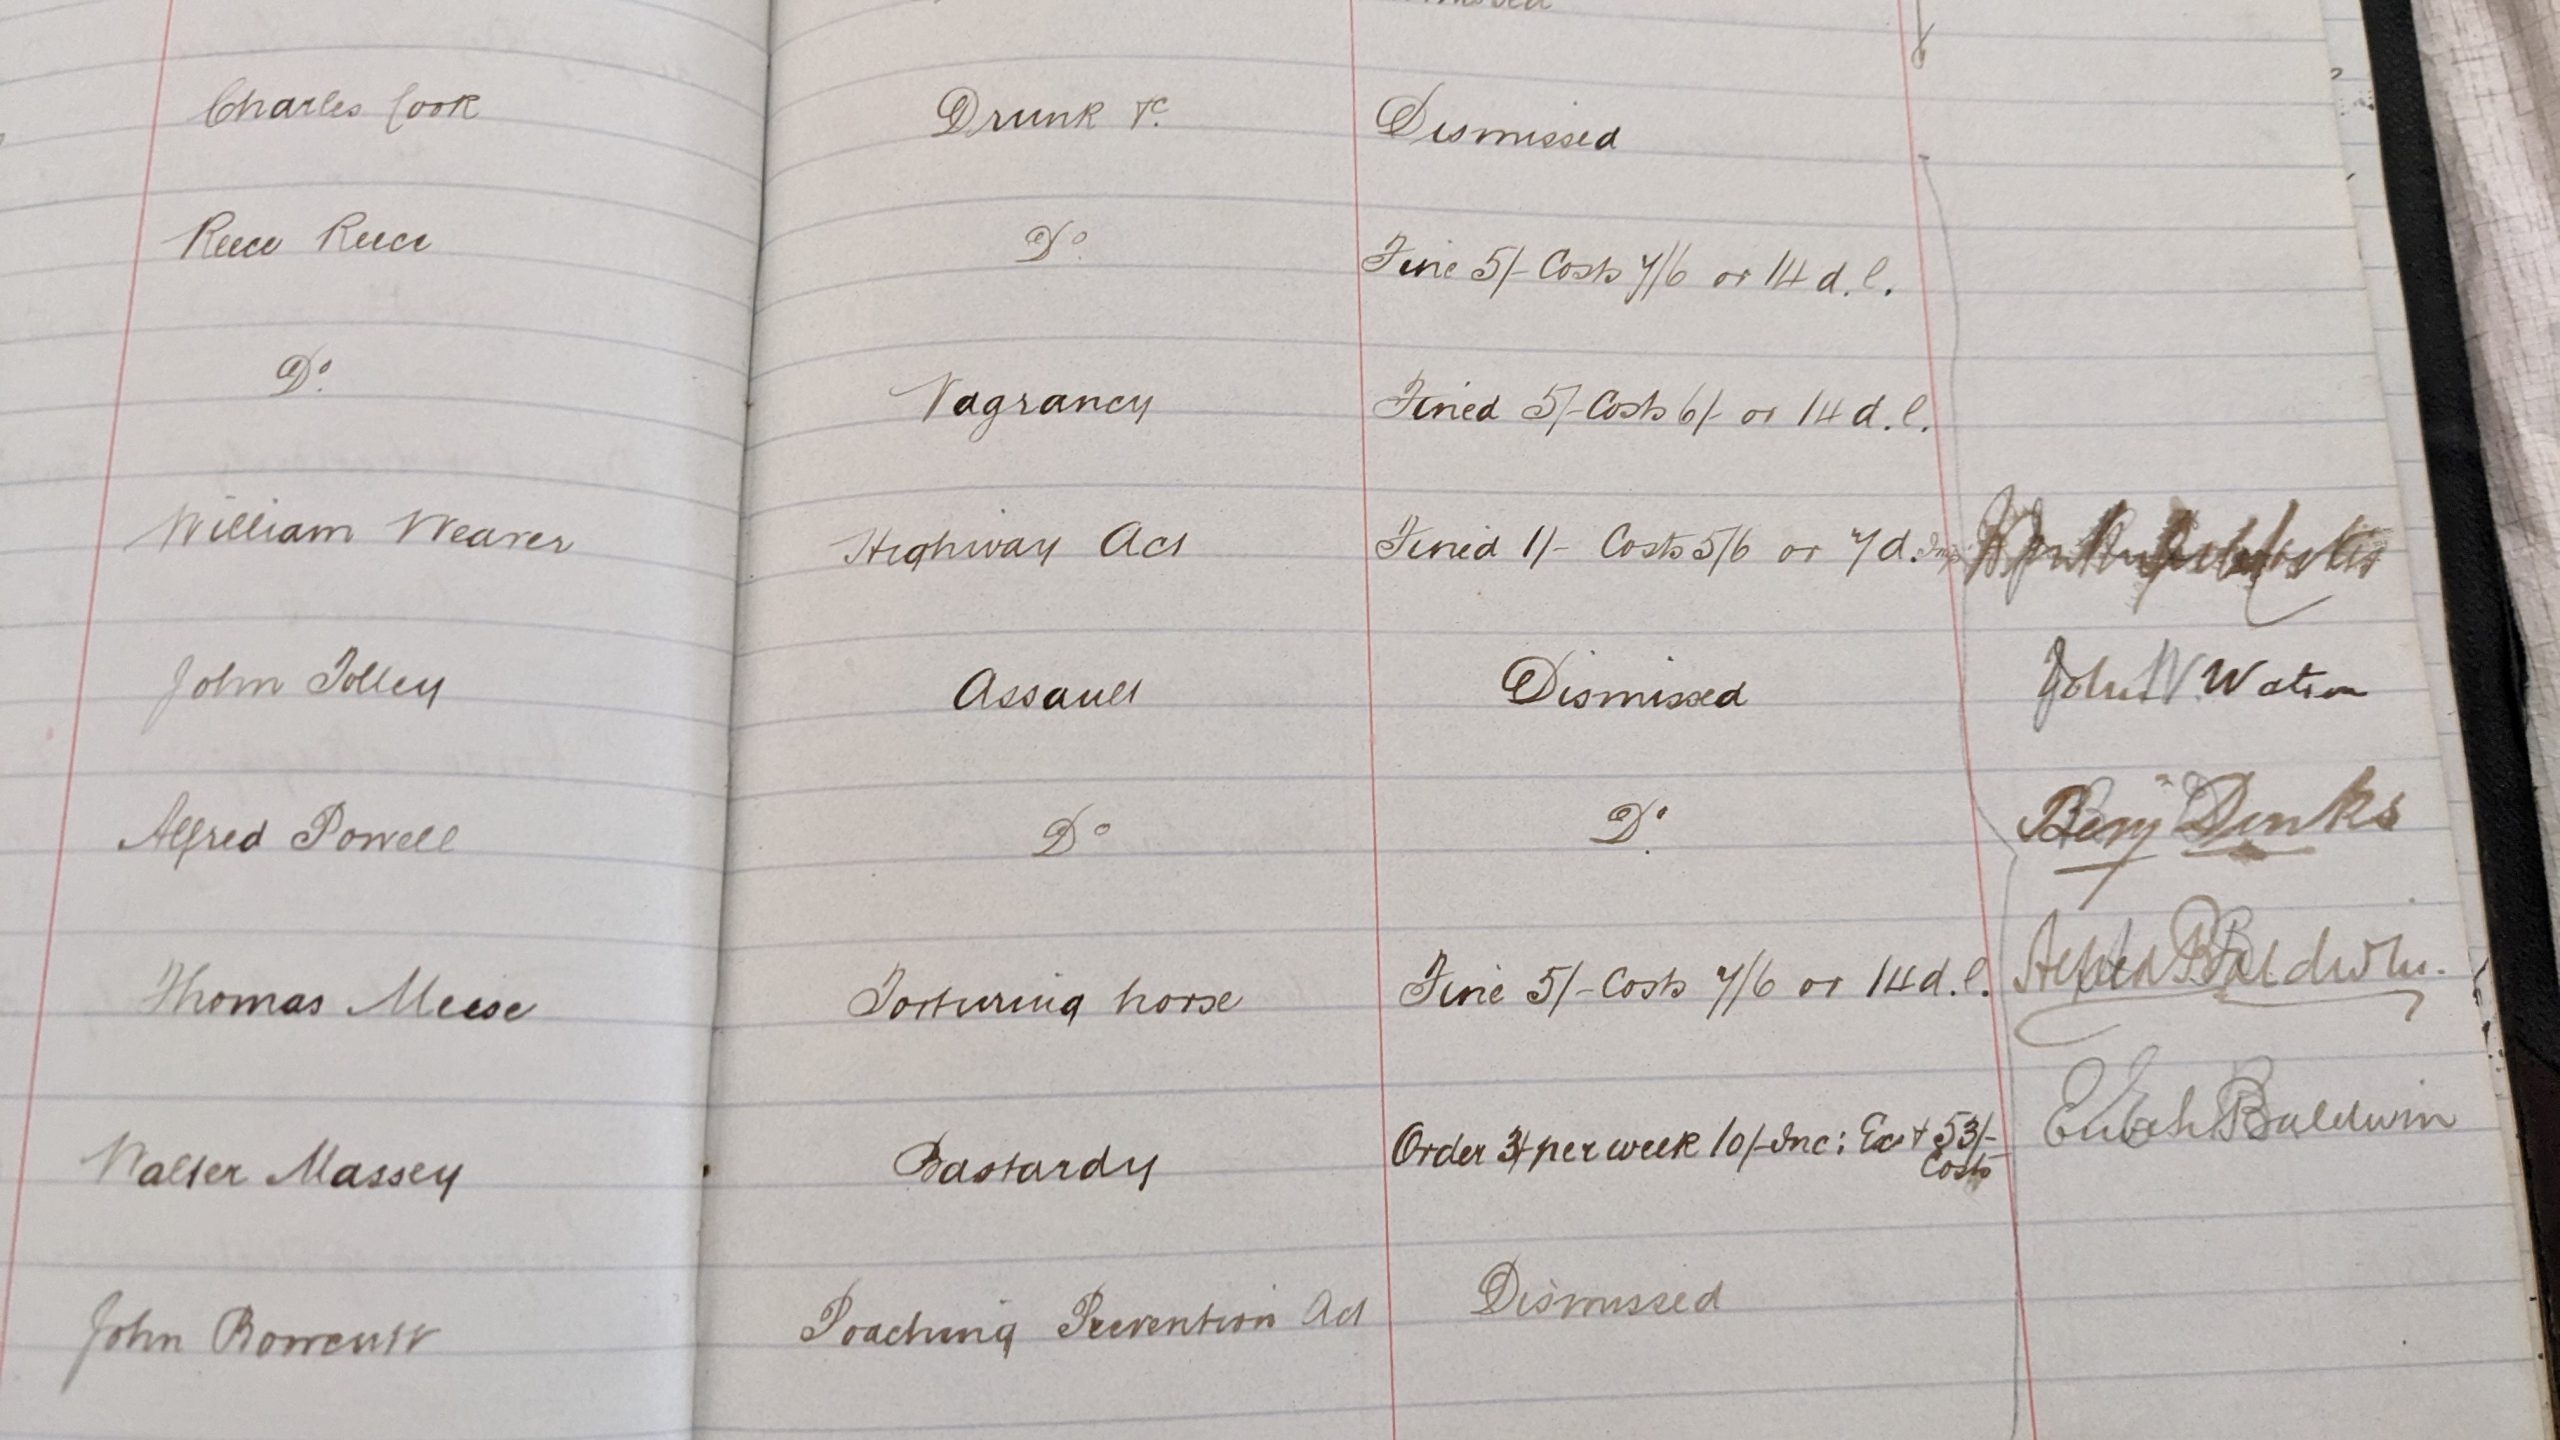 Charles Cook Drunk &c. Dismissed
Reece Reece Do. Fine 5/- Costs 7/6 or 14 d. l.
Do. Vagrancy Fined 5/- Costs 6/- or 14 d. l.
William Weaver Highway Act Fined 1/- Costs 5/6 or 7 d.
John Tolley Assault Dismissed John W. Watson
Alfred Powell Do Do. Benj Danks
Thomas Meese Torturing horse Fine 5/- Costs 7/6 or 14 d. l. Alfred Baldwin.
Walter Massey Bastardy Order 3/- per week 10/- Inc: Ex & 53/- Costs Enoch Baldwin
John Bowcutt Poaching Prevention Act Dismissed